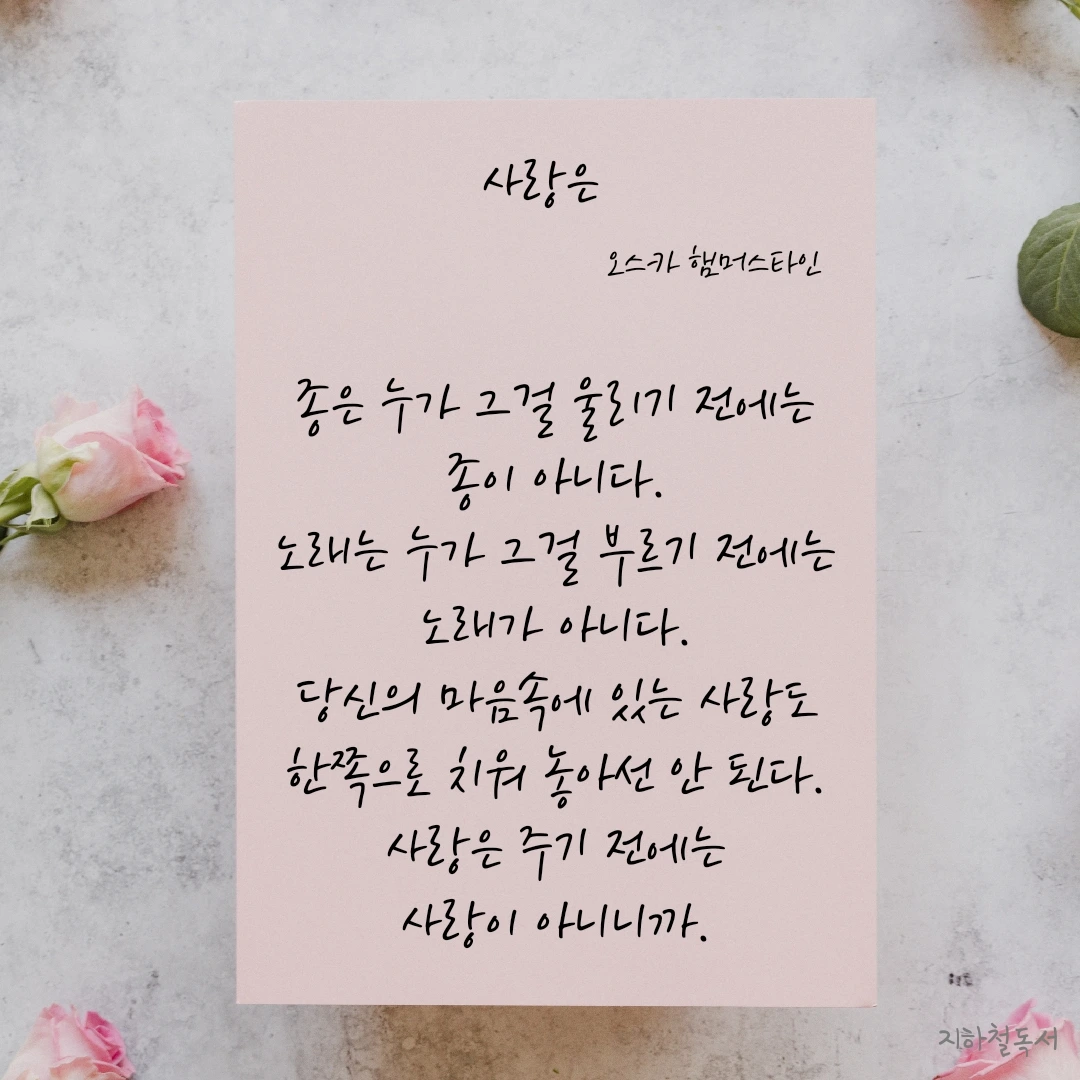 사랑은
오스카 햄머스타인
종은 누가 그걸 울리기 전에는
종이 아니다.
노래는 누가 그걸 부르기 전에는
노래가 아니다.
당신의 마음속에 있는 사랑도
한쪽으로 치워 놓아선 안 된다.
사랑은 주기 전에는
사랑이 아니니까.
지하철독서